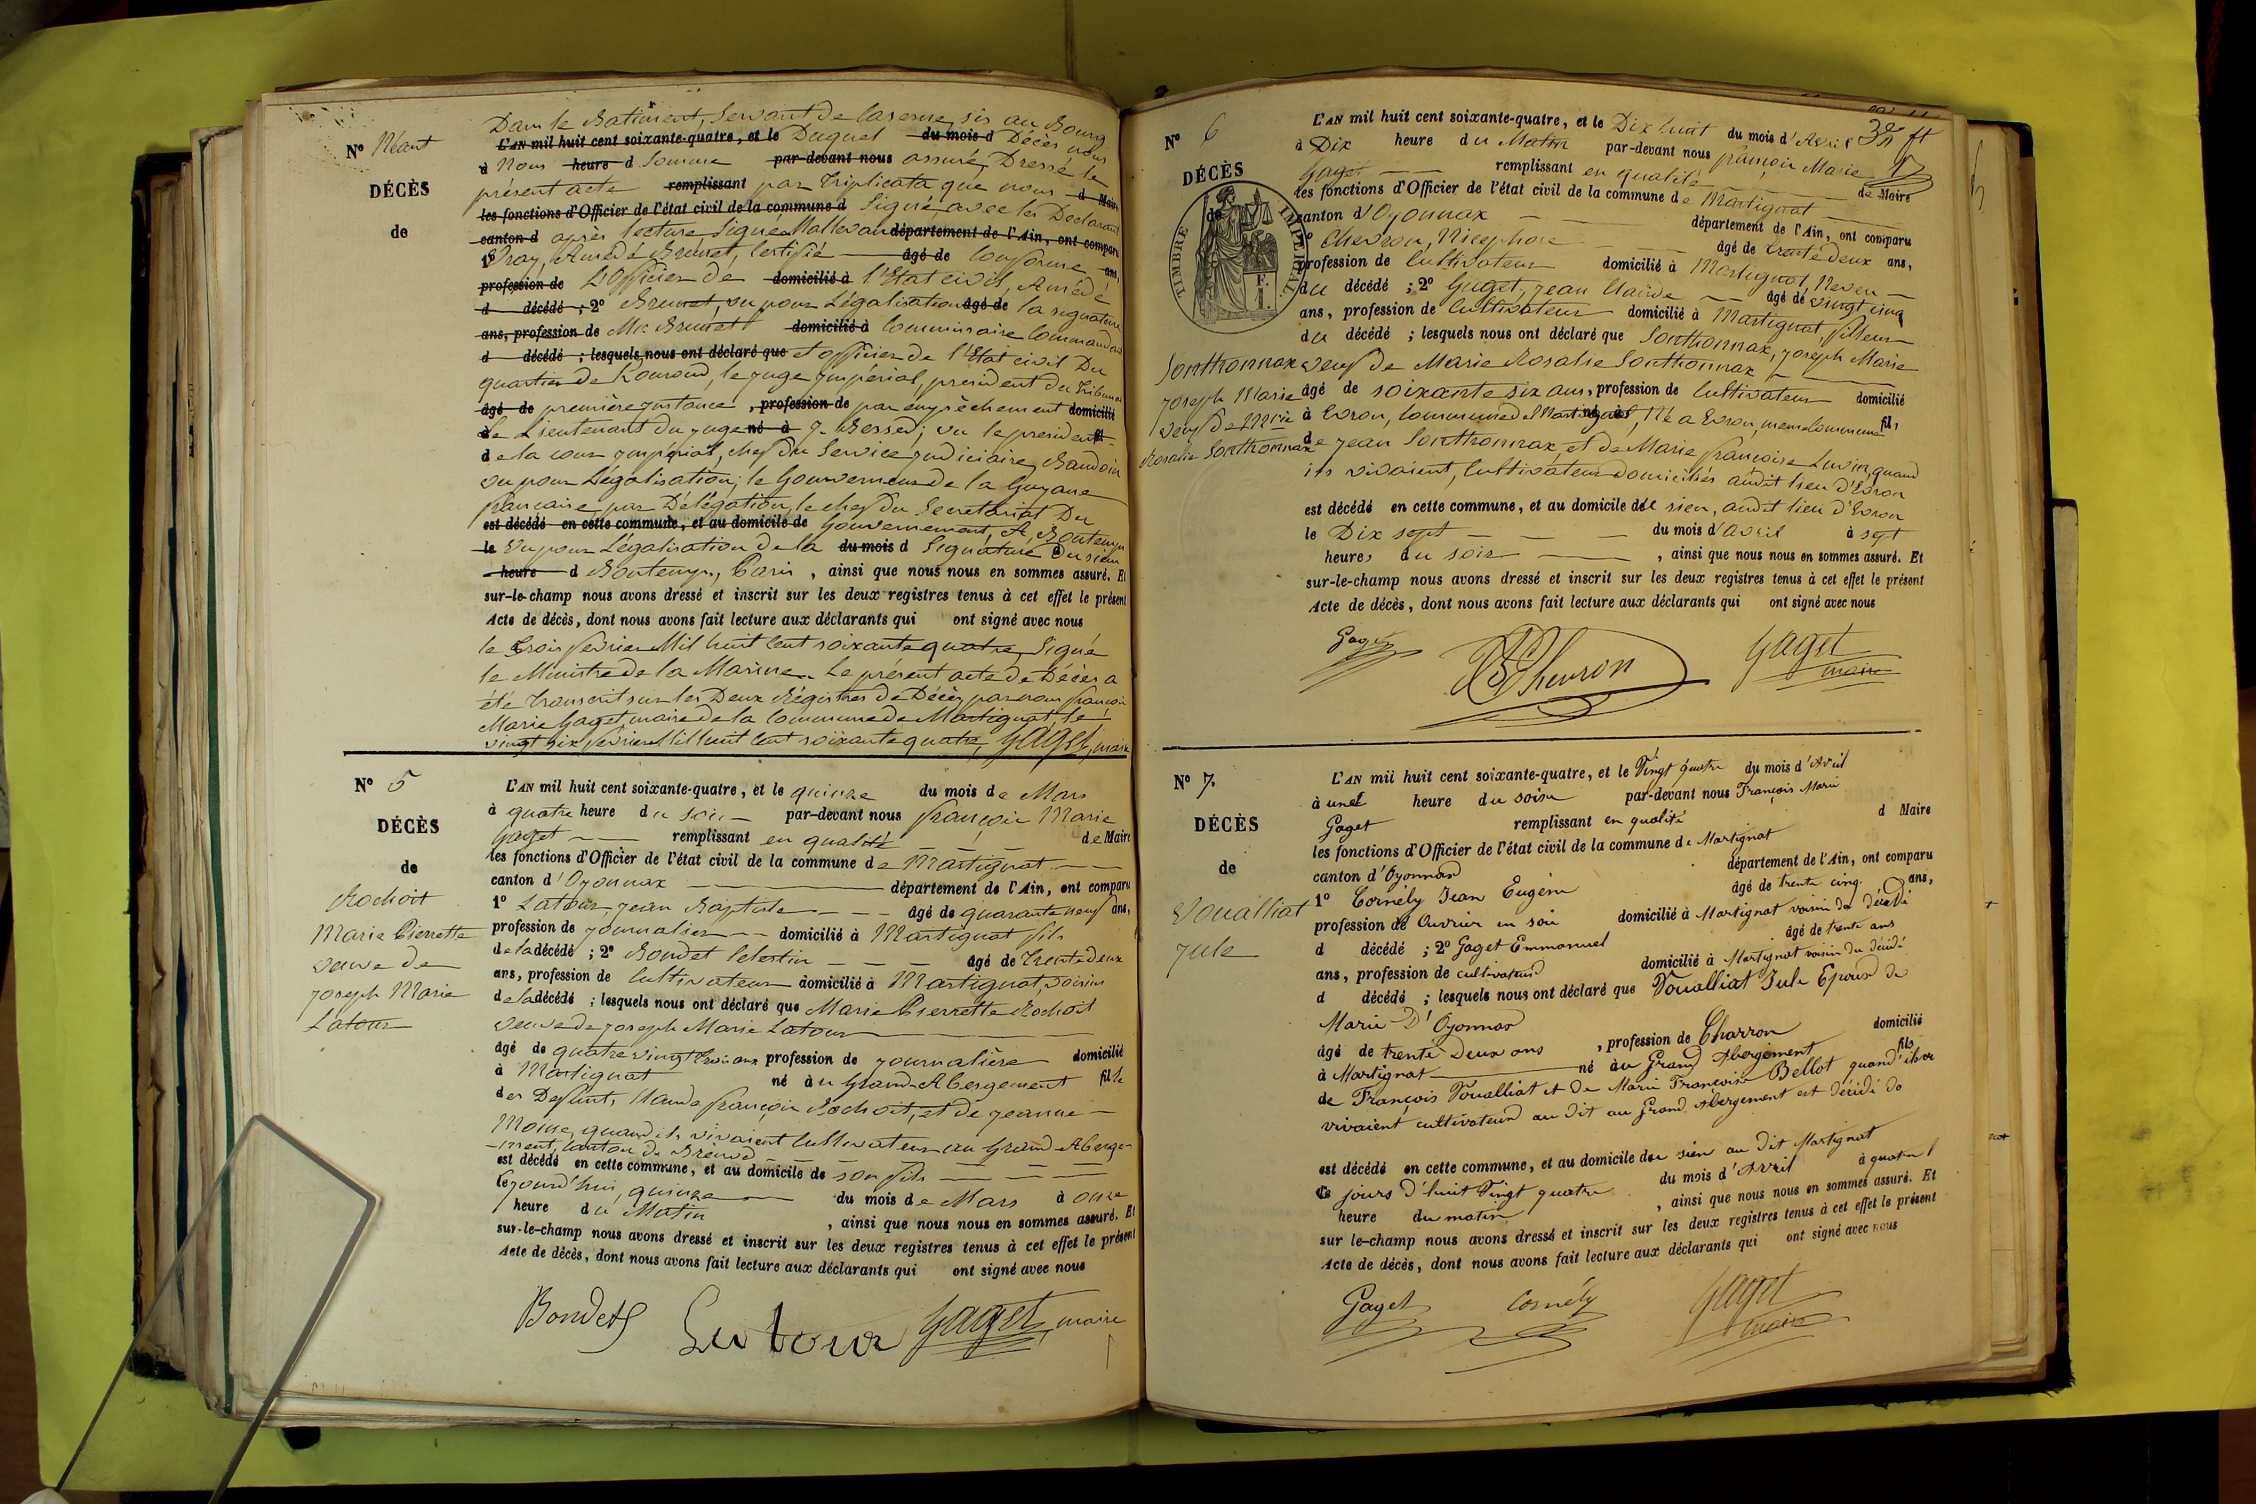 Dans le Batiment, Servant de Caserne, sis au Bourg
N° Néant
L'AN mil huit cent soixante-quatre, et le Duquel du mois d Décès nous
d Nous heure d Somme par-devant nous assuré, Dressé le
DÉCÈS
présent acte remplissant par Triplicata que nous d Maire
les fonctions d'Officier de l'état civil de la commune d Signé, avec les Declarant
de
canton d après lecture Signé, Mallevau département de l'Ain, ont comparu
1° Vray, Amédé Brunet, Certifié âgé de Conforme ans,
profession de L'Officier de domicilié à l'Etat civil, Amédé
d décédé ; 2° Brunet, vu pour Légalisation âgé de la signature
ans, profession de Mr Brunet domicilié à Commissaire Commandant
d décédé ; lesquels nous ont déclaré que et officier de l'Etat civil Du
quartier de Kourou, le juge impérial, president du Tribunal
âgé de première instance, profession de par empêchement domicilié
à le Lieutenant du juge né à ; vu le president fil
de la cour impérial, chef du Service judiciaire, Baudoin
vu pour Légalisation; le Gouverneur de la Guyane
française par Délégation, le chef du Secretariat Du
est décédé en cette commune, et au domicile de Gouvernement, A, Bontemps
le Vu pour Légalisation de la du mois d Signature à du sieur
heure d Bontemps, Paris, ainsi que nous nous en sommes assuré. Et
sur-le-champ nous avons dressé et inscrit sur les deux registres tenus à cet effet le présent
Acte de décès, dont nous avons fait lecture aux déclarants qui ont signé avec nous
le trois fevrier Mil huit Cent soixante quatre, Signé
le Ministre de la Marine. Le présent acte de Décès a
été transcrit sur les Deux Régistres de Décès, par nous françois
Marie Gaget, maire de la Commune de Martignat, le
vingt six fevrier Mil huit Cent soixante quatre, Gaget, maire
N° 5
L'AN mil huit cent soixante-quatre, et le quinze du mois de Mars
à quatre heure du soir par-devant nous françois Marie
DÉCÈS
Gaget remplissant en qualité de Maire
les fonctions d'Officier de l'état civil de la commune de Martignat
de
canton d'Oyonnax département de l'Ain, ont comparu
Rochoit
Marie Pierrette
veuve de
Joseph Marie
Latour
1° Latour, jean Baptiste âgé de quarante neuf ans,
profession de journalier domicilié à Martignat fils
de la décédé ; 2° Bondet Celestin âgé de Trente deux
ans, profession de Cultivateur domicilié à Martignat, voisin
de la décédé ; lesquels nous ont déclaré que Marie Pierrette Rochoit
veuve de joseph Marie Latour
âgé de quatre vingt trois ans profession de journalière domicilié
à Martignat né à u Grand-Abergement fille
des Defunts, Claude françois Rochoit, et de jeanne
Moine, quand ils vivaient Cultivateur au Grand Aberge-
-ment, Canton de Brénod
est décédé en cette commune, et au domicile de son fils
le jourd'hui, quinze du mois de Mars à onze
heure du Matin, ainsi que nous nous en sommes assuré. Et
sur-le-champ nous avons dressé et inscrit sur les deux registres tenus à cet effet le présent
Acte de décès, dont nous avons fait lecture aux déclarants qui ont signé avec nous
Bondet Latour Gaget, maire
N° 6
L'AN mil huit cent soixante-quatre, et le Dix huit du mois d'Avril
à Dix heure du Matin par-devant nous françois Marie
DÉCÈS
Gaget remplissant en qualité de Maire
les fonctions d'Officier de l'état civil de la commune de Martignat
de
canton d'Oyonnax département de l'Ain, ont comparu
TIMBRE IMPÉRIAL
1° Chevron, Nicephore âgé de trente deux ans,
profession de Cultivateur domicilié à Martignat, Neveu
du décédé ; 2° Gaget, jean Claude âgé de vingt cinq
ans, profession de Cultivateur domicilié à Martignat, filleur
du décédé ; lesquels nous ont déclaré que Sonthonnax, joseph Marie
Sonthonnax
joseph Marie
veuf de Marie
Rosalie Sonthonnax
veuf de Marie Rosalie Sonthonnax
âgé de soixante six ans, profession de Cultivateur domicilié
à Evron, Commune de Martignat, né à Evron, meme Commune fils
de jean Sonthonnax, et de Marie françoise Luvin, quand
ils vivaient, Cultivateur domiciliés audit lieu d'Evron
est décédé en cette commune, et au domicile de le sien, audit lieu d'Evron
le Dix sept du mois d'avril à sept
heures du soir, ainsi que nous nous en sommes assuré. Et
sur-le-champ nous avons dressé et inscrit sur les deux registres tenus à cet effet le présent
Acte de décès, dont nous avons fait lecture aux déclarants qui ont signé avec nous
Gaget Chevron Gaget
maire
N° 7.
L'AN mil huit cent soixante-quatre, et le Vingt quatre du mois d'Avril
à une heure du soir par-devant nous François Marie
DÉCÈS
Gaget remplissant en qualité d Maire
les fonctions d'Officier de l'état civil de la commune de Martignat
de
canton d'Oyonnax département de l'Ain, ont comparu
Voualliat
Jule
1° Cornély Jean Eugène âgé de trente cinq ans,
profession de Ouvrier en soie domicilié à Martignat voisin du décédé
d décédé ; 2° Gaget Emmanuel âgé de trente ans
ans, profession de cultivateur domicilié à Martignat voisin du décédé
d décédé ; lesquels nous ont déclaré que Voualliat Jule Epoux de
Marie D'Oyonnax
âgé de trente deux ans, profession de Charron domicilié
à Martignat né au Grand Abergement fils
de François Voualliat et de Marie Françoise Bellot quand ils
vivaient cultivateurs au dit au Grand Abergement est décédé do
est décédé en cette commune, et au domicile du sien au dit Martignat
Ce jours d'huit Vingt quatre du mois d'Avril à quatre
heure du matin, ainsi que nous nous en sommes assuré. Et
sur le-champ nous avons dressé et inscrit sur les deux registres tenus à cet effet le présent
Acte de décès, dont nous avons fait lecture aux déclarants qui ont signé avec nous
Gaget Cornély Gaget
maire